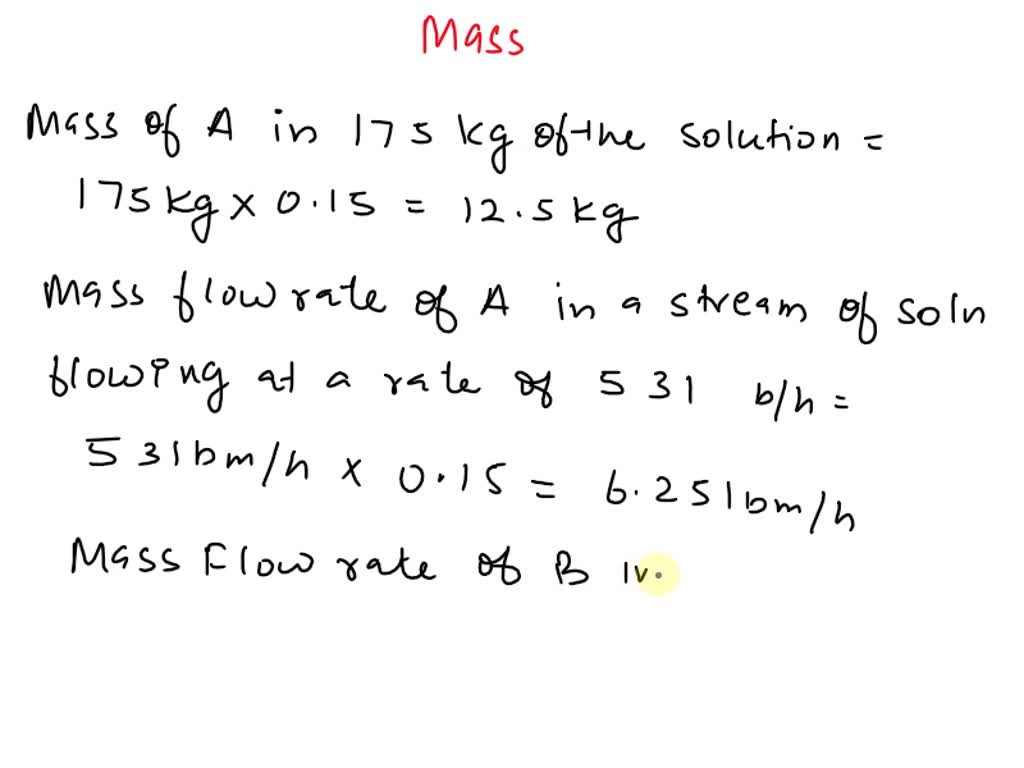 Mass
Mass of A in 175 kg of the solution =
175 kg x 0.15 = 12.5 kg
Mass flow rate of A in a stream of soln
flowing at a rate of 531 b/h =
531bm/h x 0.15 = 6.251bm/h
Mass Flow rate of B